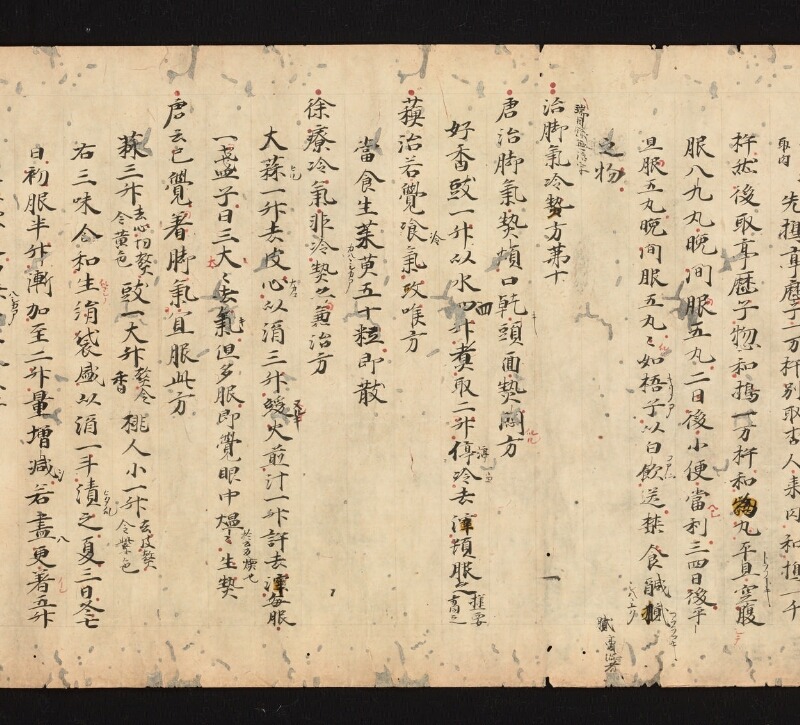 先擣亭歷子一万杵別取杏人来肉和擣一千
杵然後取亭歷子惣和搗一万杵和為丸平旦空腹
服八九丸晩間服五丸二日後小便當利三四日後平
旦服五丸晩間服五丸〻如梧子以白飲送禁食鹹
之物
治脚氣冷熱方第十
唐治脚氣熱煩口乾頭面熱悶方
好香豉一升以水四升煮取二升停冷去滓頓服之
蘇治若覺冷氣攻喉方
當食生茱萸五十粒即散
徐療冷氣非冷熱公兼治方
大蒜一升去皮心以酒三升緩火煎汁一升許去滓每服
一盞子日三大〻去氣但多服即覺眼中熅〻生熱
唐云已覺著脚氣宜服此方
蒜三升去心切熬令黄色豉一大升熬令香桃人小一升去皮熬令紫色
右三味合和生絹袋盛以酒一斗漬之夏三日冬七
日初服半升漸加至二升量增減若盡更著五升